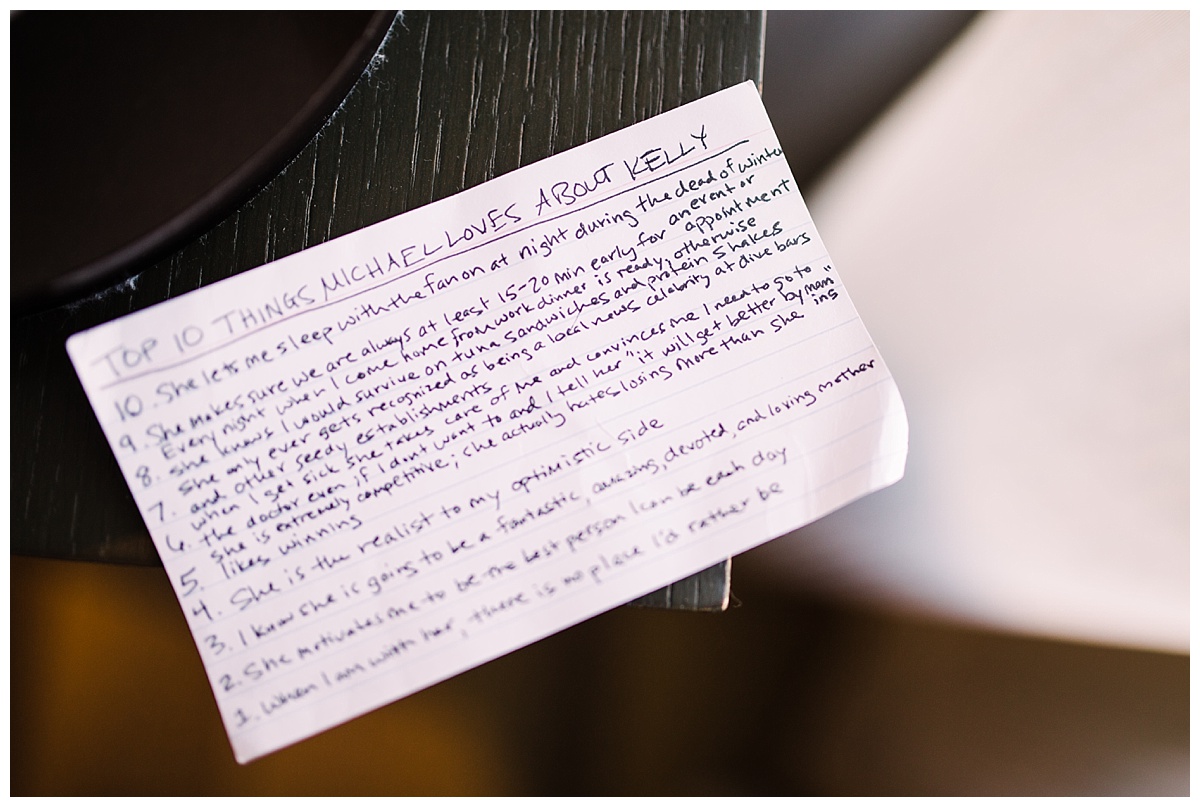 TOP 10 THINGS MICHAEL LOVES ABOUT KELLY
10. She lets me sleep with the fan on at night during the dead of winter
9. She makes sure we are always at least 15-20 min early for an event or
appointment
8. Every night when I come home from work dinner is ready, otherwise
she knows I would survive on tuna sandwiches and protein shakes
7. She only ever gets recognized as being a local news celebrity at dive bars
and other seedy establishments
6. When I get sick she takes care of me and convinces me I need to go to
the doctor even if I dont want to and I tell her "it will get better by
5. She is extremely competitive; she actually hates losing more than she
likes winning
4. She is the realist to my optimistic side
3. I know she is going to be a fantastic, amazing, devoted, and loving mother
2. She motivates me to be the best person I can be each day
1. When I am with her, there is no place I'd rather be